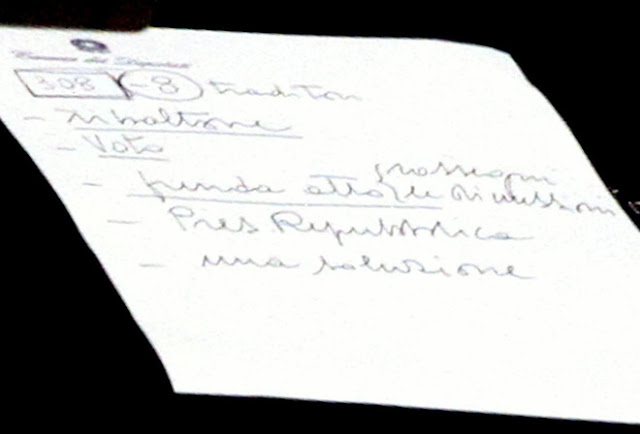 Camera dei Deputati
308 -8 traditori
- ribaltone
- Voto
rassegni
- prenda atto le dimissioni
- Pres Repubblica
- una soluzione